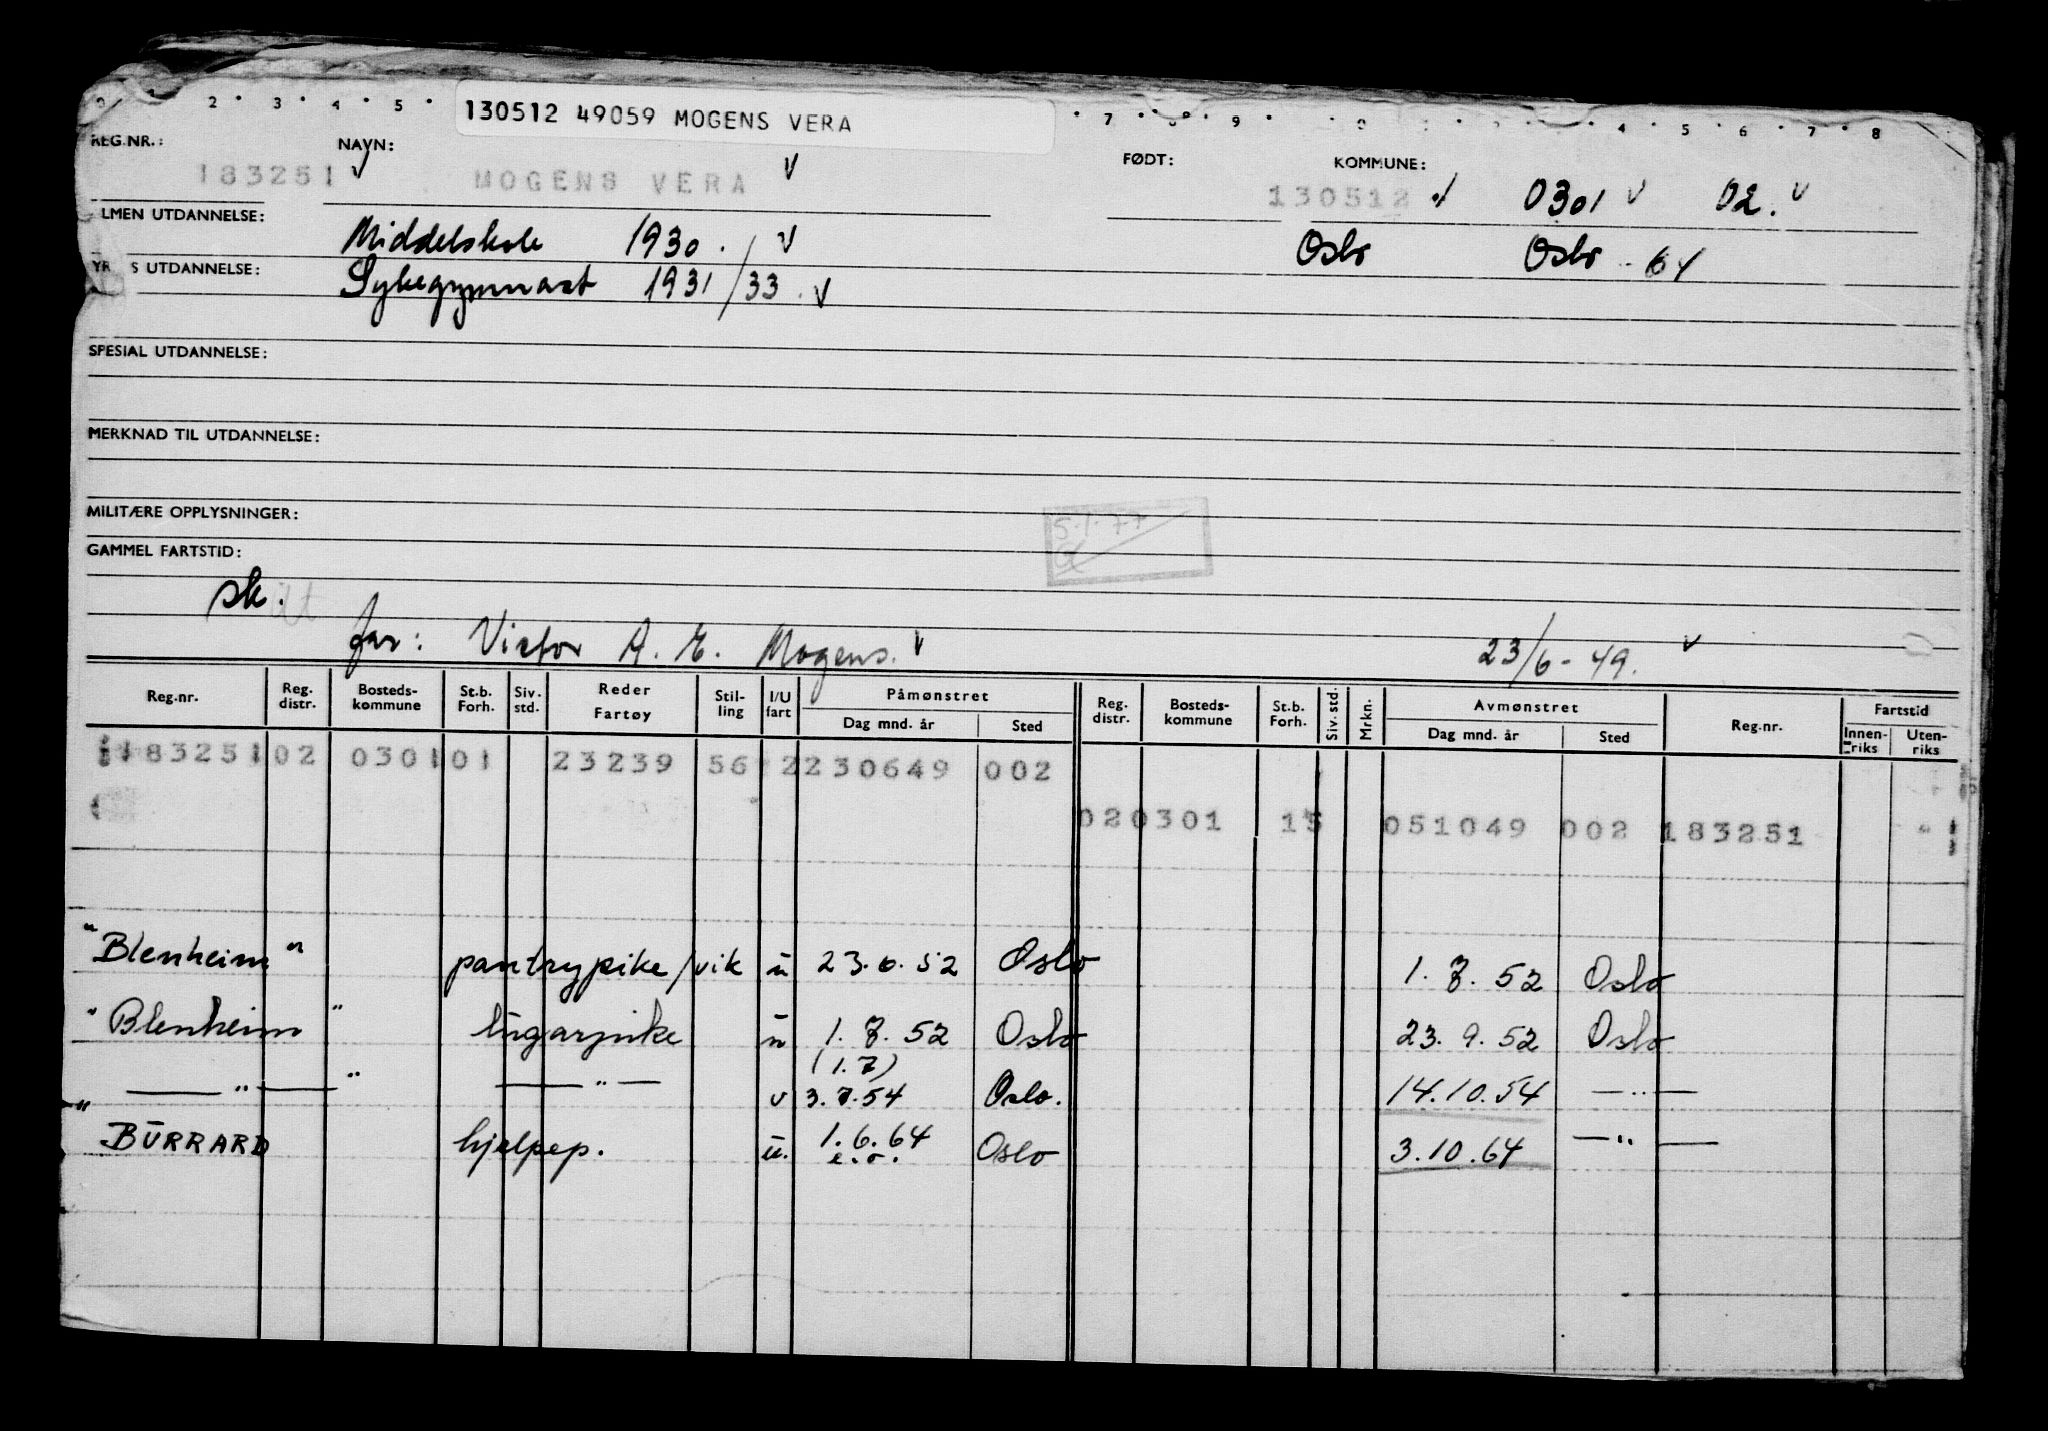 2 · 3 · 4 · 5 · 130512 49059 MOGENS VERA · 7 · 8 · 9 · 4 5 6 7 8
REG.NR.: NAVN: FØDT: KOMMUNE:
183251 √ MOGENS VERA √ 130512 √ 0301 √ 02. √
LMEN UTDANNELSE: Middelskole 1930. √ Oslo Oslo - 64
YR S UTDANNELSE: Sykegymnast 1931/33. √
SPESIAL UTDANNELSE:
MERKNAD TIL UTDANNELSE:
MILITÆRE OPPLYSNINGER:
5.1.77
GAMMEL FARTSTID:
sk.
far: Victor A. E. Mogens. √ 23/6 - 49. √
Reg.nr. Reg. distr. Bosteds-kommune St.b. Forh. Siv. std. Reder Fartøy Stil-ling I/U fart Påmønstret Dag mnd. år Sted Reg. distr. Bosteds-kommune St.b. Forh. Siv. std. Mrkn. Avmønstret Dag mnd. år Sted Reg.nr. Fartstid Innen-riks Uten-riks
183251 02 0301 01 23239 56 2 230649 002
02 0301 15 051049 002 183251
"Blenheim" pantrypike/vik u 23.6.52 Oslo 1.7.52 Oslo
"Blenheim" lugarpike u 1.7.52 Oslo 23.9.52 Oslo
(1.7)
— " — " — " — u 3.7.54 Oslo. 14.10.54 — " —
"BURRARD hjelpep. u. 1.6.64 Oslo 3.10.64 — " —
e.o.